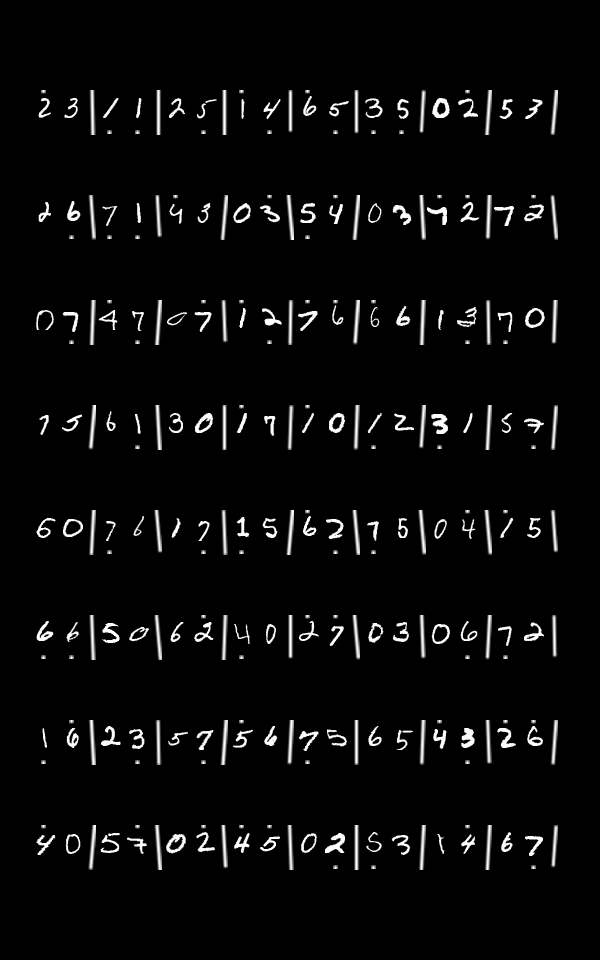 2 3 | 1 1 | 2 5 | 1 4 | 6 5 | 3 5 | 0 2 | 5 3 |
2 6 | 7 1 | 4 3 | 0 3 | 5 4 | 0 3 | 7 2 | 7 2 |
0 7 | 4 7 | 0 7 | 1 2 | 7 6 | 6 6 | 1 3 | 7 0 |
7 5 | 6 1 | 3 0 | 1 7 | 1 0 | 1 2 | 3 1 | 5 7 |
6 0 | 7 6 | 1 7 | 1 5 | 6 2 | 7 5 | 0 4 | 1 5 |
6 6 | 5 0 | 6 2 | 4 0 | 2 7 | 0 3 | 0 6 | 7 2 |
1 6 | 2 3 | 5 7 | 5 6 | 7 5 | 6 5 | 4 3 | 2 6 |
4 0 | 5 7 | 0 2 | 4 5 | 0 2 | 5 3 | 1 4 | 6 7 |